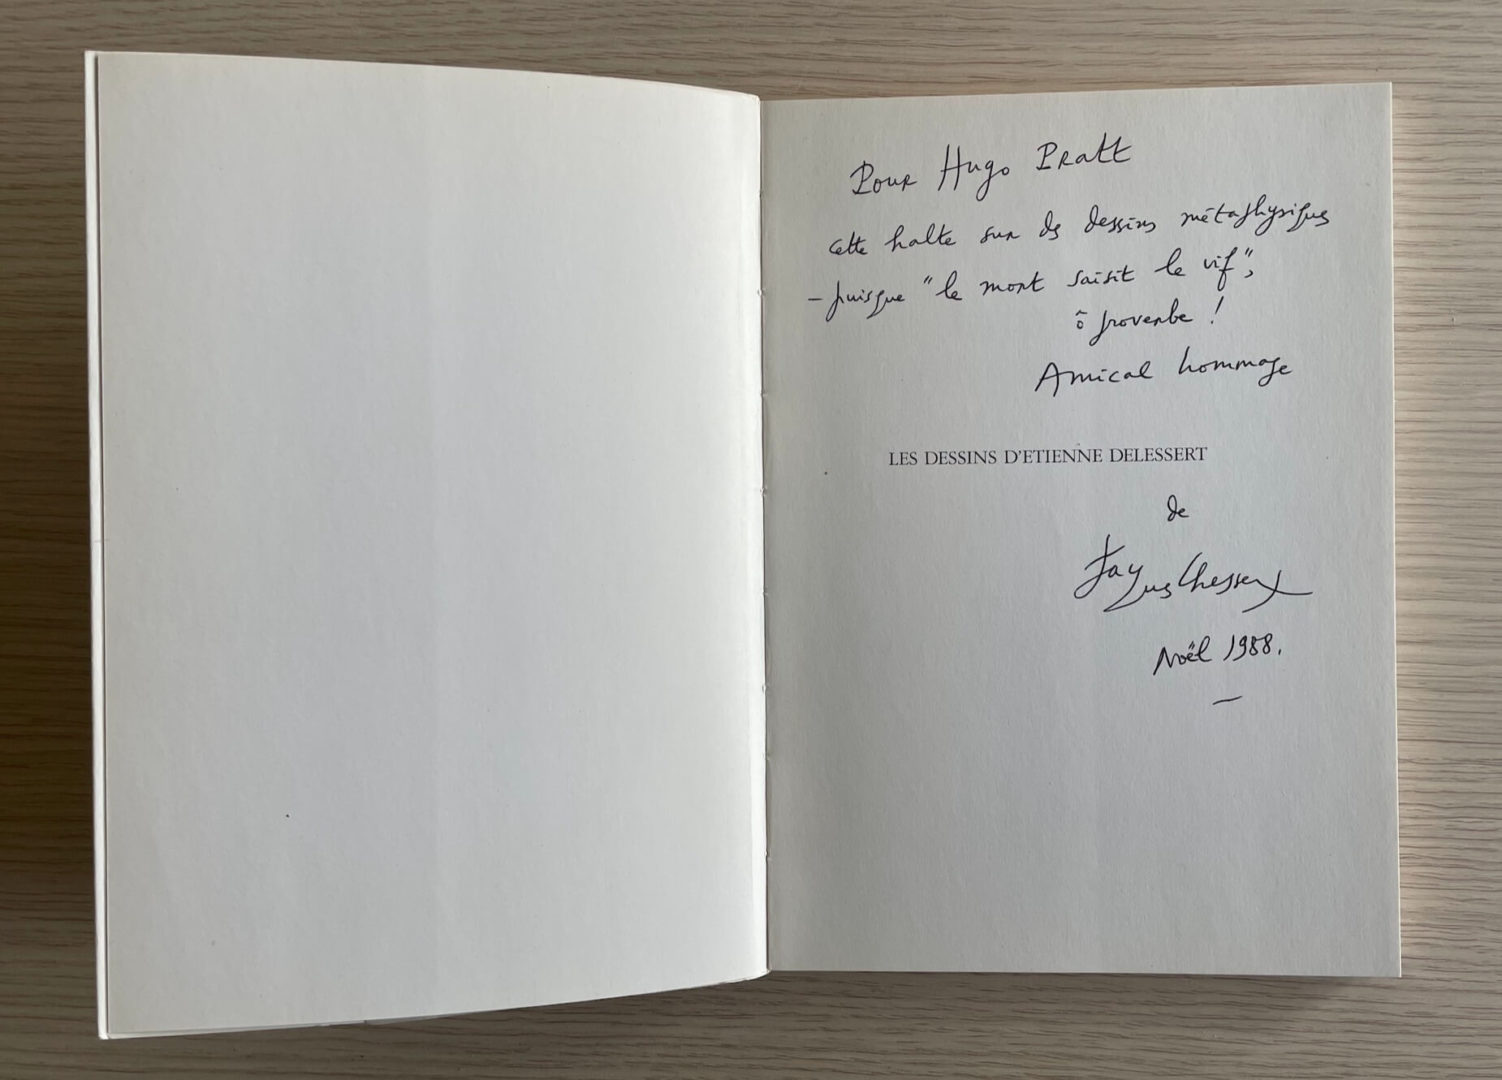 Pour Hugo Pratt
cette halte sur des dessins métaphysiques
– puisque "le mort saisit le vif",
ô proverbe !
Amical hommage
LES DESSINS D'ETIENNE DELESSERT
de
Jacques Chessex
Noël 1988.